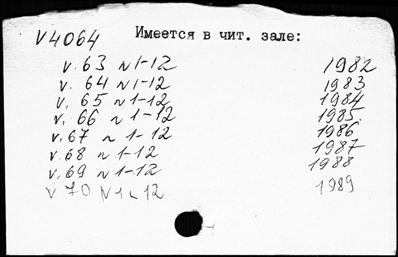 V4064 Имеется в чит. зале:
v. 63 N 1-12 1982
v. 64 N 1-12 1983
v. 65 N 1-12 1984
v. 66 N 1-12 1985
v. 67 N 1-12 1986
v. 68 N 1-12 1987
v. 69 N 1-12 1988
v 70 N 1-12 1989